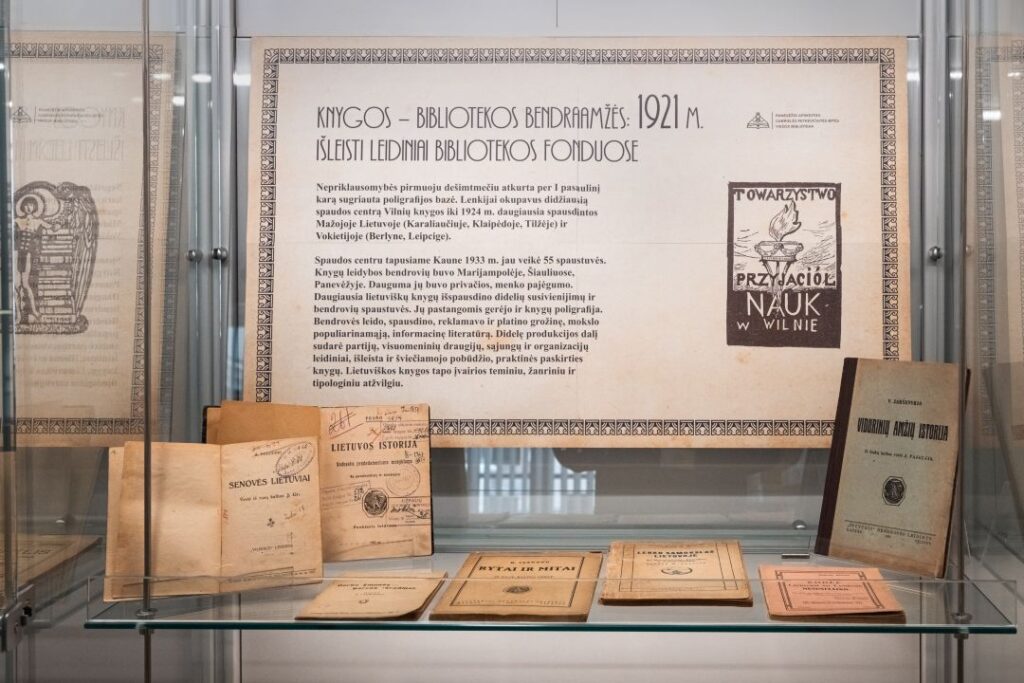 KNYGOS – BIBLIOTEKOS BENDRAAMŽĖS: 1921 M.
IŠLEISTI LEIDINIAI BIBLIOTEKOS FONDUOSE
Nepriklausomybės pirmuoju dešimtmečiu atkurta per I pasaulinį
karą sugriauta poligrafijos bazė. Lenkijai okupavus didžiausią
spaudos centrą Vilnių knygos iki 1924 m. daugiausia spausdintos
Mažojoje Lietuvoje (Karaliaučiuje, Klaipėdoje, Tilžėje) ir
Vokietijoje (Berlyne, Leipcige).
Spaudos centru tapusiame Kaune 1933 m. jau veikė 55 spaustuvės.
Knygų leidybos bendrovių buvo Marijampolėje, Šiauliuose,
Panevėžyje. Dauguma jų buvo privačios, menko pajėgumo.
Daugiausia lietuviškų knygų išspausdino didelių susivienijimų ir
bendrovių spaustuvės. Jų pastangomis gerėjo ir knygų poligrafija.
Bendrovės leido, spausdino, reklamavo ir platino grožinę, mokslo
populiarinamąją, informacinę literatūrą. Didelę produkcijos dalį
sudarė partijų, visuomeninių draugijų, sąjungų ir organizacijų
leidiniai, išleista ir šviečiamojo pobūdžio, praktinės paskirties
knygų. Lietuviškos knygos tapo įvairios teminiu, žanriniu ir
tipologiniu atžvilgiu.
TOWARZYSTWO
PRZYJACIÓŁ
NAUK
W WILNIE
SENOVĖS LIETUVIAI
LIETUVOS ISTORIJA
RYTAI IR MITAI
VIDURINIŲ AMŽIŲ ISTORIJA